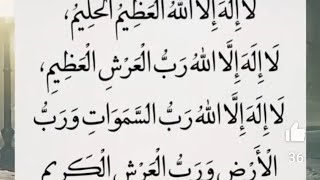 لَا إِلَهَ إِلَّا اللهُ الْعَظِيمُ الْحَلِيمُ،
لَا إِلَهَ إِلَّا اللهُ رَبُّ الْعَرْشِ الْعَظِيمِ،
لَا إِلَهَ إِلَّا اللهُ رَبُّ السَّمَوَاتِ وَرَبُّ
الْأَرْضِ وَرَبُّ الْعَرْشِ الْكَرِيمِ
36